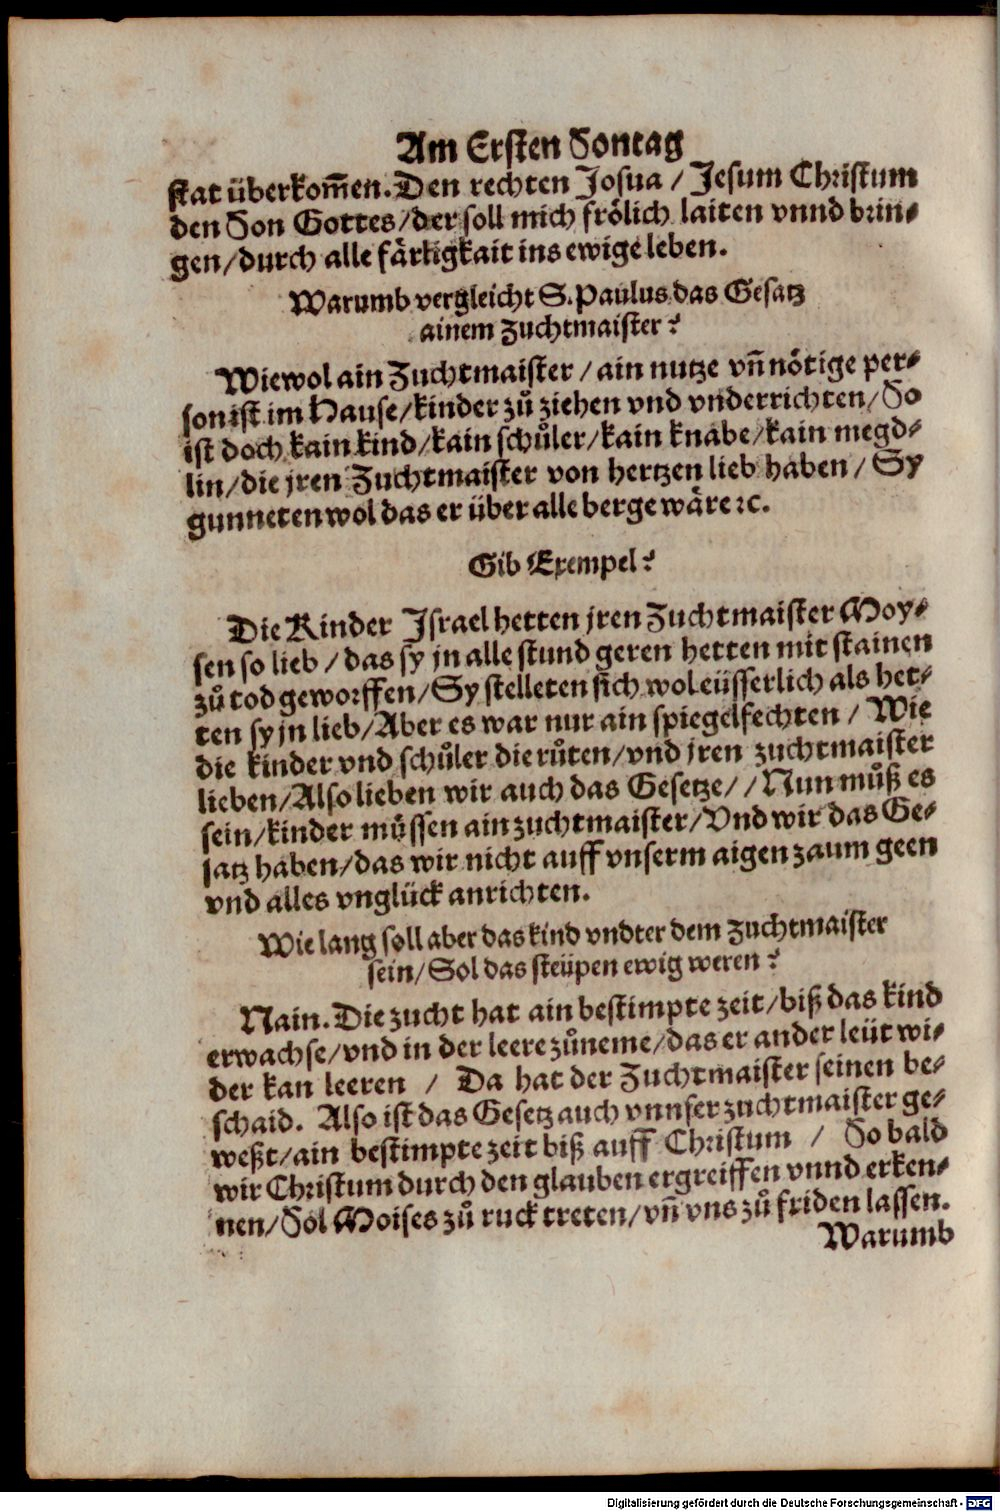 Am Ersten Sontag
stat überkom̃en. Den rechten Josua / Jesum Christum
den Son Gottes / der soll mich frölich laiten vnnd brin⸗
gen / durch alle färligkait ins ewige leben.
Warumb vergleicht S. Paulus das Gesatz
ainem Zuchtmaister?
Wiewol ain Zuchtmaister / ain nutze vn̄ nötige per⸗
son ist im Hause / kinder zů ziehen vnd vnderrichten / So
ist doch kain kind / kain schůler / kain knabe / kain megd⸗
lin / die jren Zuchtmaister von hertzen lieb haben / Sy
gunneten wol das er über alle berge wäre ꝛc.
Gib Exempel?
Die Kinder Israel hetten jren Zuchtmaister Moy⸗
sen so lieb / das sy jn alle stund geren hetten mit stainen
zů tod geworffen / Sy stelleten sich wol eüsserlich als het⸗
ten sy jn lieb / Aber es war nur ain spiegelfechten / Wie
die kinder vnd schůler die růten / vnd jren zuchtmaister
lieben / Also lieben wir auch das Gesetze / / Nun můß es
sein / kinder müssen ain zuchtmaister / Vnd wir das Ge⸗
satz haben / das wir nicht auff vnserm aigen zaum geen
vnd alles vnglück anrichten.
Wie lang soll aber das kind vndter dem zuchtmaister
sein / Sol das steüpen ewig weren?
Nain. Die zucht hat ain bestimpte zeit / biß das kind
erwachse / vnd in der leere zůneme / das er ander leüt wi⸗
der kan leeren / Da hat der Zuchtmaister seinen be⸗
schaid. Also ist das Gesetz auch vnnser zuchtmaister ge⸗
weßt / ain bestimpte zeit biß auff Christum / So bald
wir Christum durch den glauben ergreiffen vnnd erken⸗
nen / Sol Moises zů ruck treten / vn̄ vns zů friden lassen.
Warumb
Digitalisierung gefördert durch die Deutsche Forschungsgemeinschaft - DFG